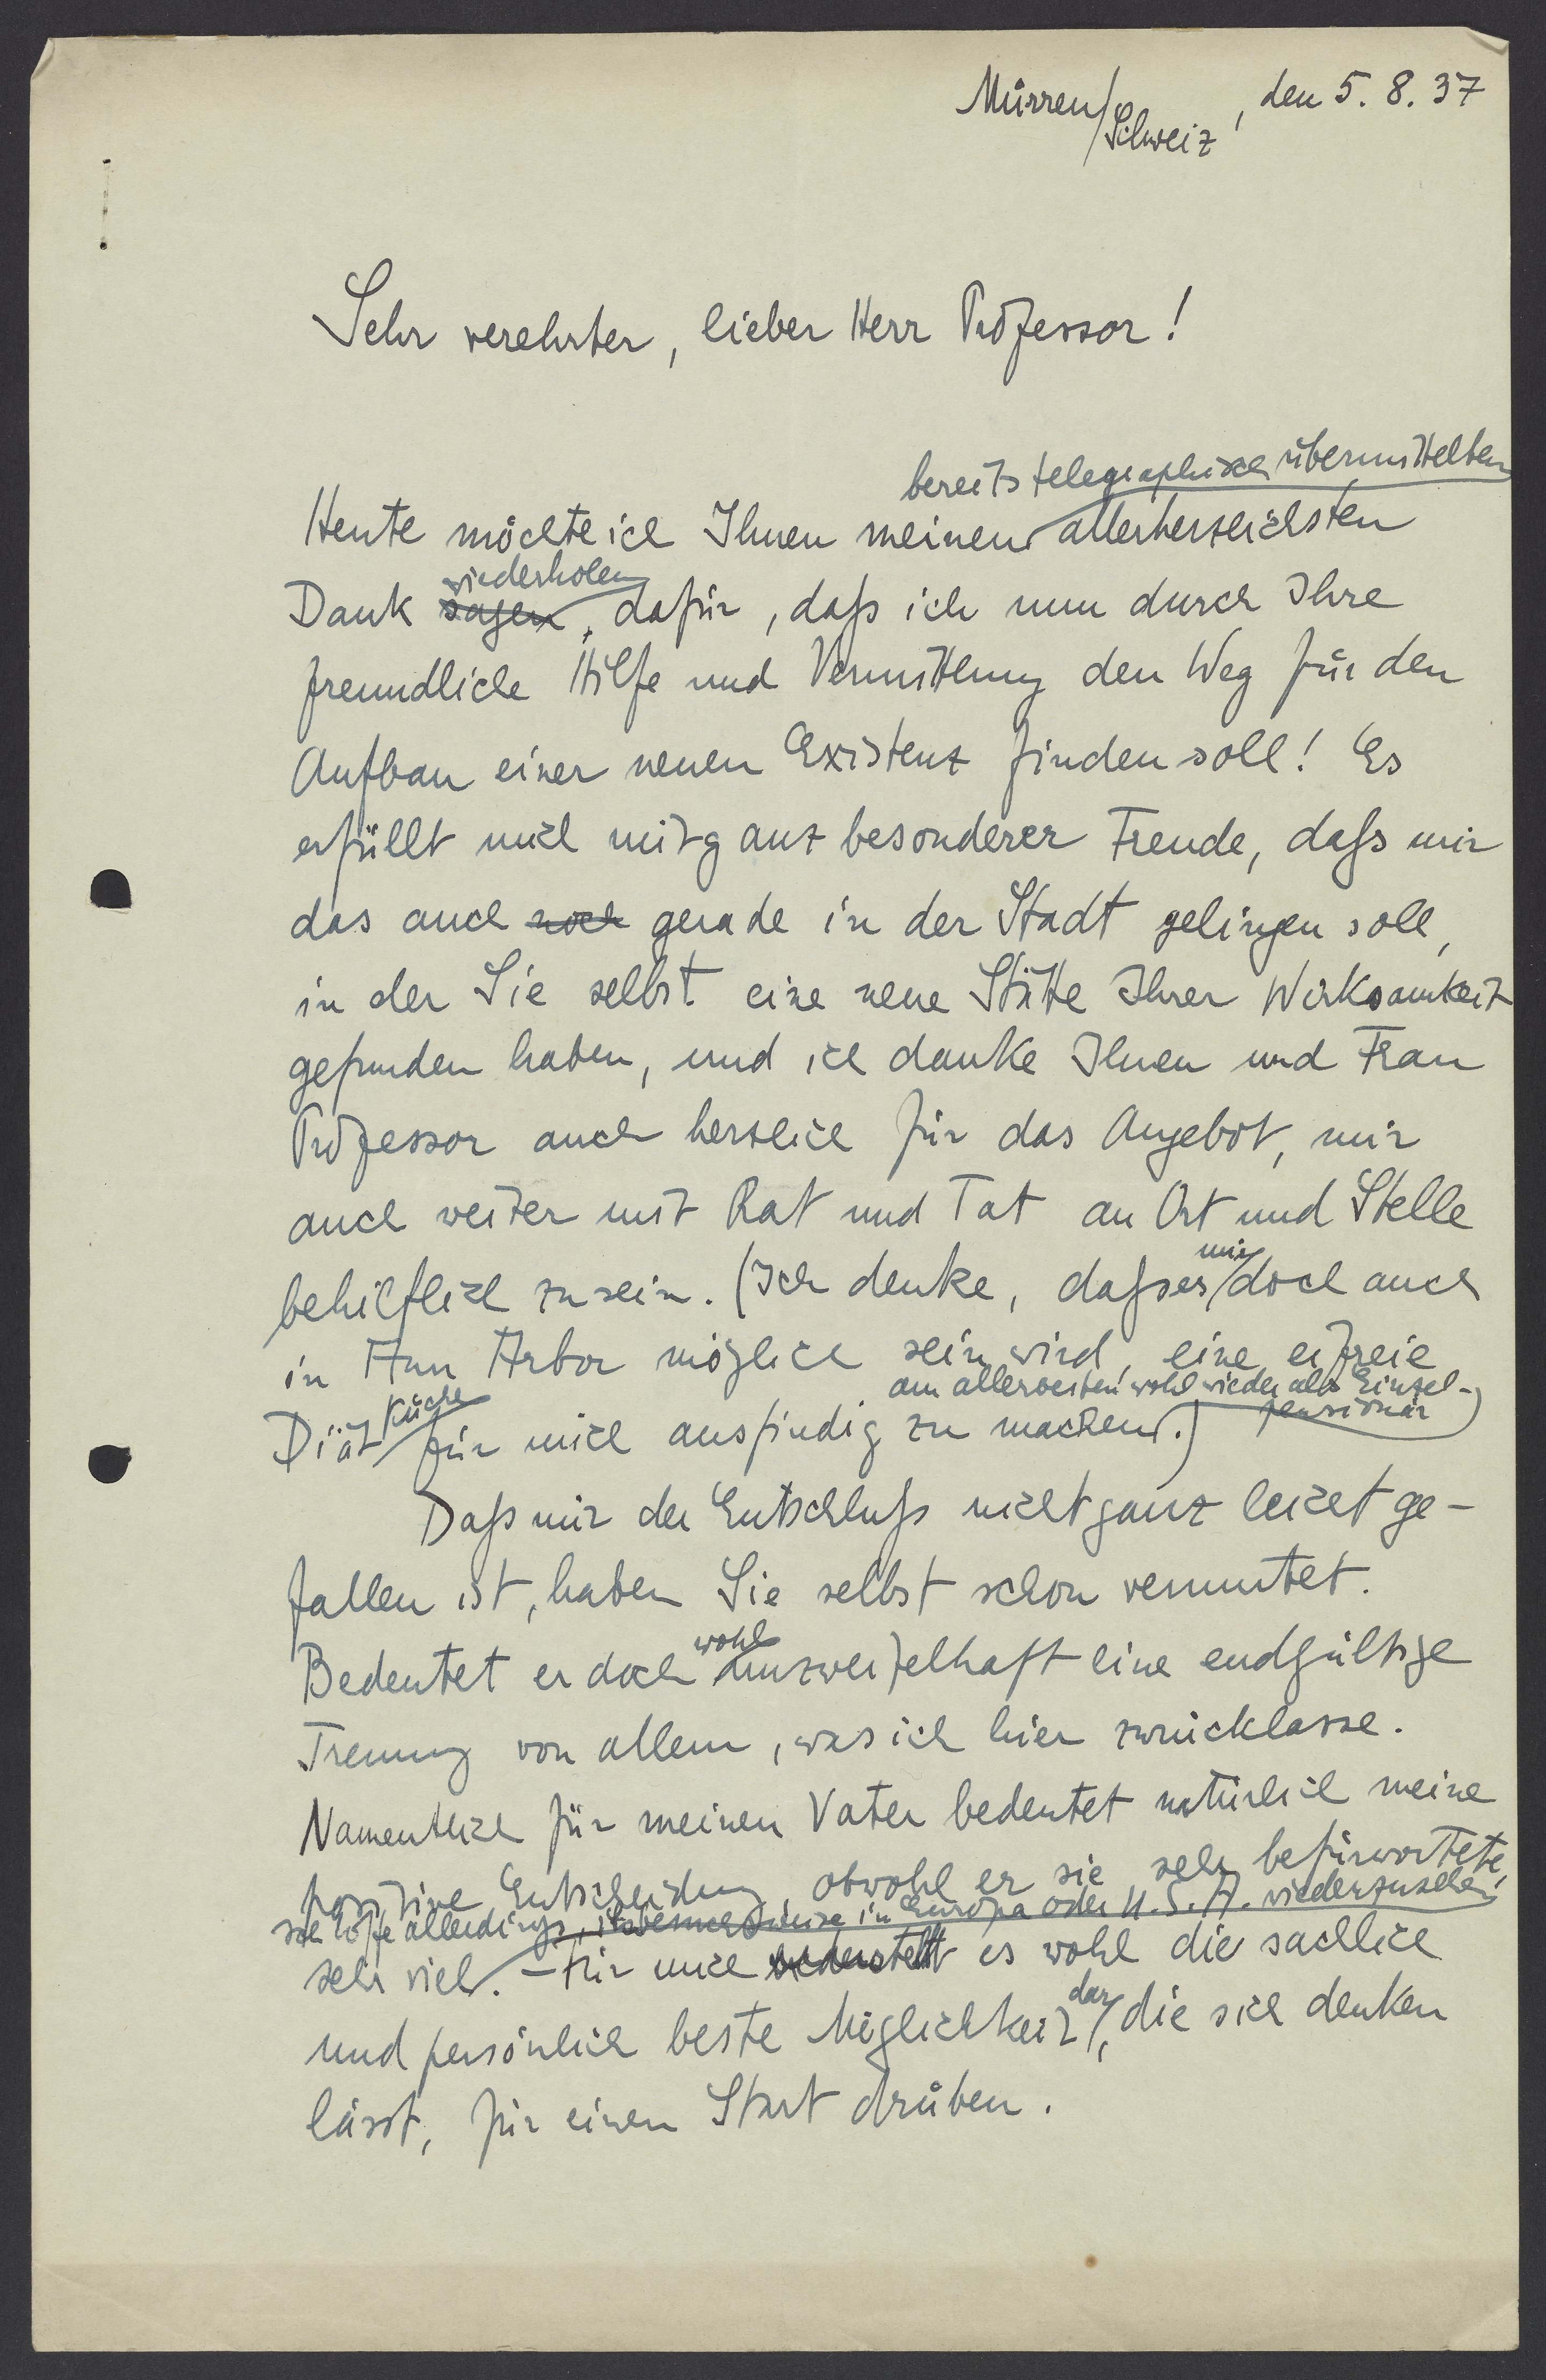 Mürren/Schweiz, den 5. 8. 37
Sehr verehrter, lieber Herr Professor!
bereits telegraphisch übermittelten
Heute möchte ich Ihnen meinen allerherzlichsten
wiederholen
Dank sagen, dafür, daß ich nun durch Ihre
freundliche Hilfe und Vermittlung den Weg für den
Aufbau einer neuen Existenz finden soll! Es
erfüllt mich mit ganz besonderer Freude, daß mir
das auch noch gerade in der Stadt gelingen soll,
in der Sie selbst eine neue Stätte Ihrer Wirksamkeit
gefunden haben, und ich danke Ihnen und Frau
Professor auch herzlich für das Angebot, mir
auch weiter mit Rat und Tat an Ort und Stelle
mir
behilflich zu sein. (Ich denke, daß es doch auch
in Ann Arbor möglich sein wird, eine eifreie
am allerbesten wohl wieder als Einzel-
pensionär)
Küche
Diät für mich ausfindig zu machen.)
Daß mir der Entschluß nicht ganz leicht ge-
fallen ist, haben Sie selbst schon vermutet.
wohl
Bedeutet er doch unzweifelhaft eine endgültige
Trennung von allem, was ich hier zurücklasse.
Namentlich für meinen Vater bedeutet natürlich meine
positive Entscheidung, obwohl er sie sehr befürwortete,
ich hoffe allerdings, ihn besuchsweise in Europa oder U.S.A. wiederzusehen
sehr viel. - Für mich stellt es wohl die sachlich
dar
und persönlich beste Möglichkeit, die sich denken
lässt, für einen Start drüben.